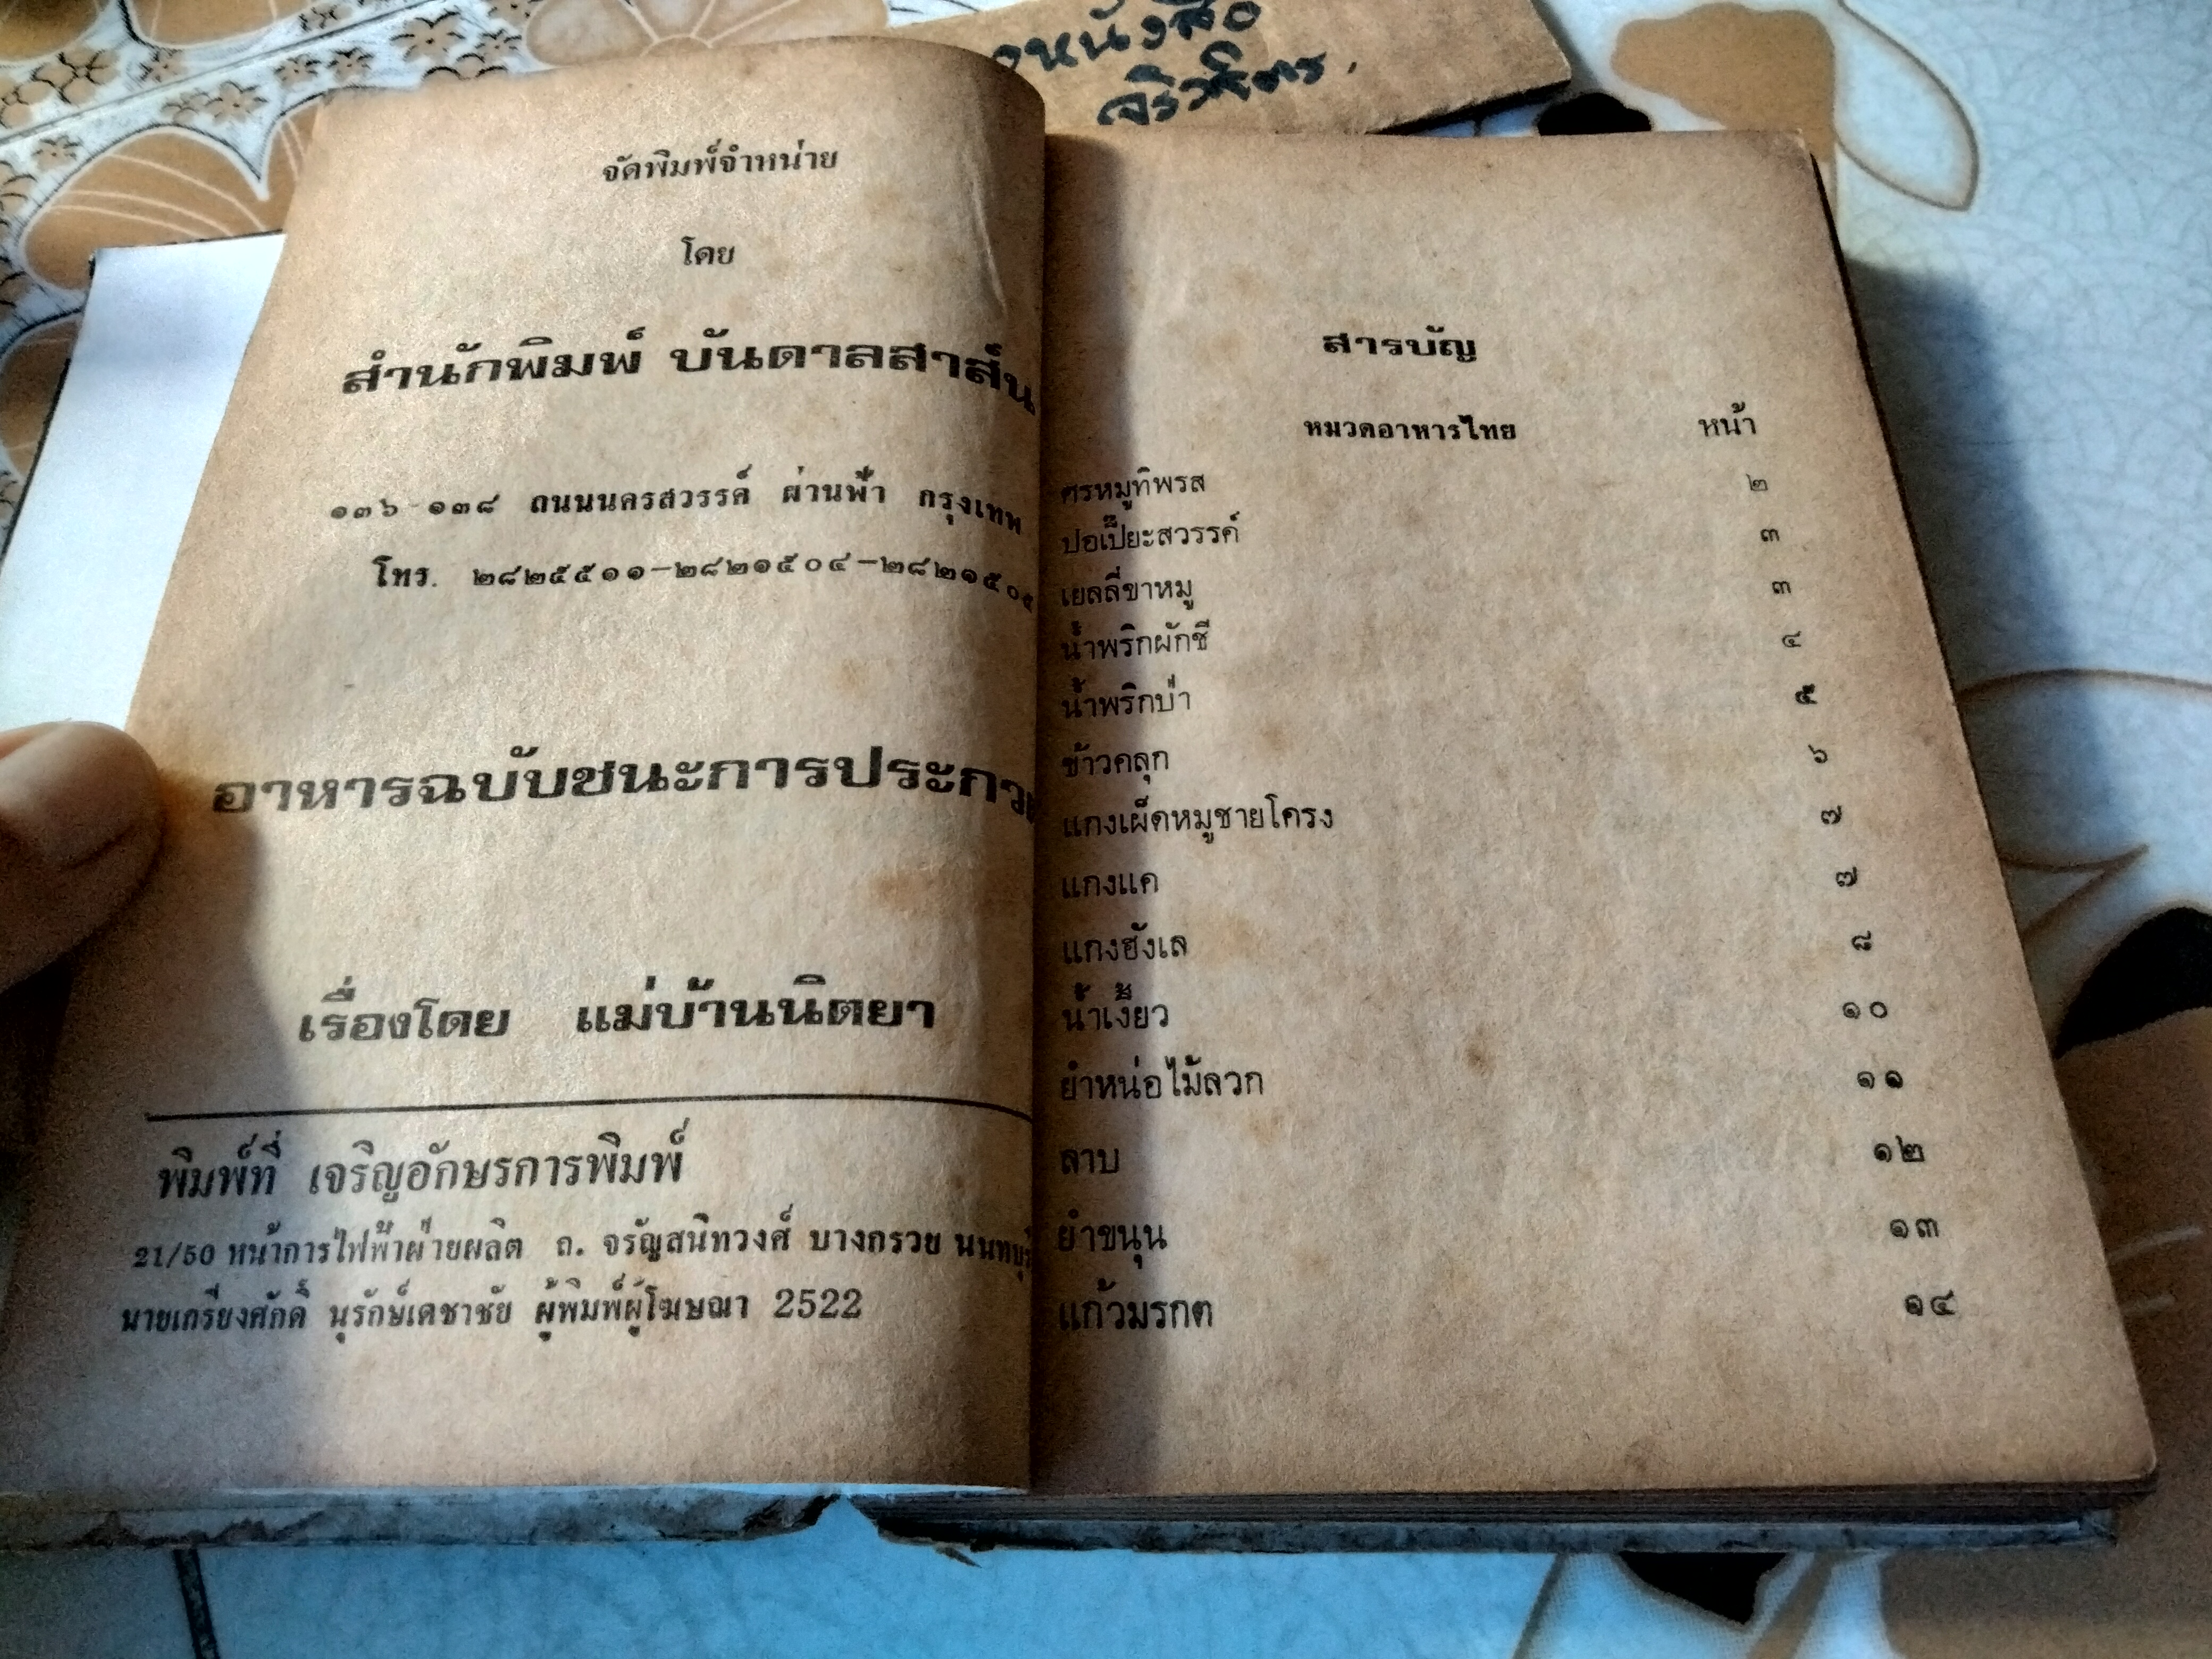 จัดพิมพ์จำหน่าย
โดย
สำนักพิมพ์ บันดาลสาส์น
๑๓๖-๑๓๘ ถนนนครสวรรค์ ผ่านฟ้า กรุงเทพ
โทร. ๒๘๒๕๕๑๑-๒๘๒๑๕๐๔-๒๘๒๑๕๐๕
อาหารฉบับชนะการประกวด
เรื่องโดย แม่บ้านนิตยา
พิมพ์ที่ เจริญอักษรการพิมพ์
21/50 หน้าการไฟฟ้าฝ่ายผลิต ถ. จรัญสนิทวงศ์ บางกรวย นนทบุรี
นายเกรียงศักดิ์ นุรักษ์เดชาชัย ผู้พิมพ์ผู้โฆษณา 2522
หนังสือ
สารบัญ
หมวดอาหารไทย หน้า
ศรหมูทิพรส ๒
ปอเปี๊ยะสวรรค์ ๓
เยลลี่ขาหมู ๓
น้ำพริกผักชี ๔
น้ำพริกป่า ๕
ข้าวคลุก ๖
แกงเผ็ดหมูชายโครง ๗
แกงแค ๗
แกงฮังเล ๘
น้ำเงี้ยว ๑๐
ยำหน่อไม้ลวก ๑๑
ลาบ ๑๒
ยำขนุน ๑๓
แก้วมรกต ๑๔